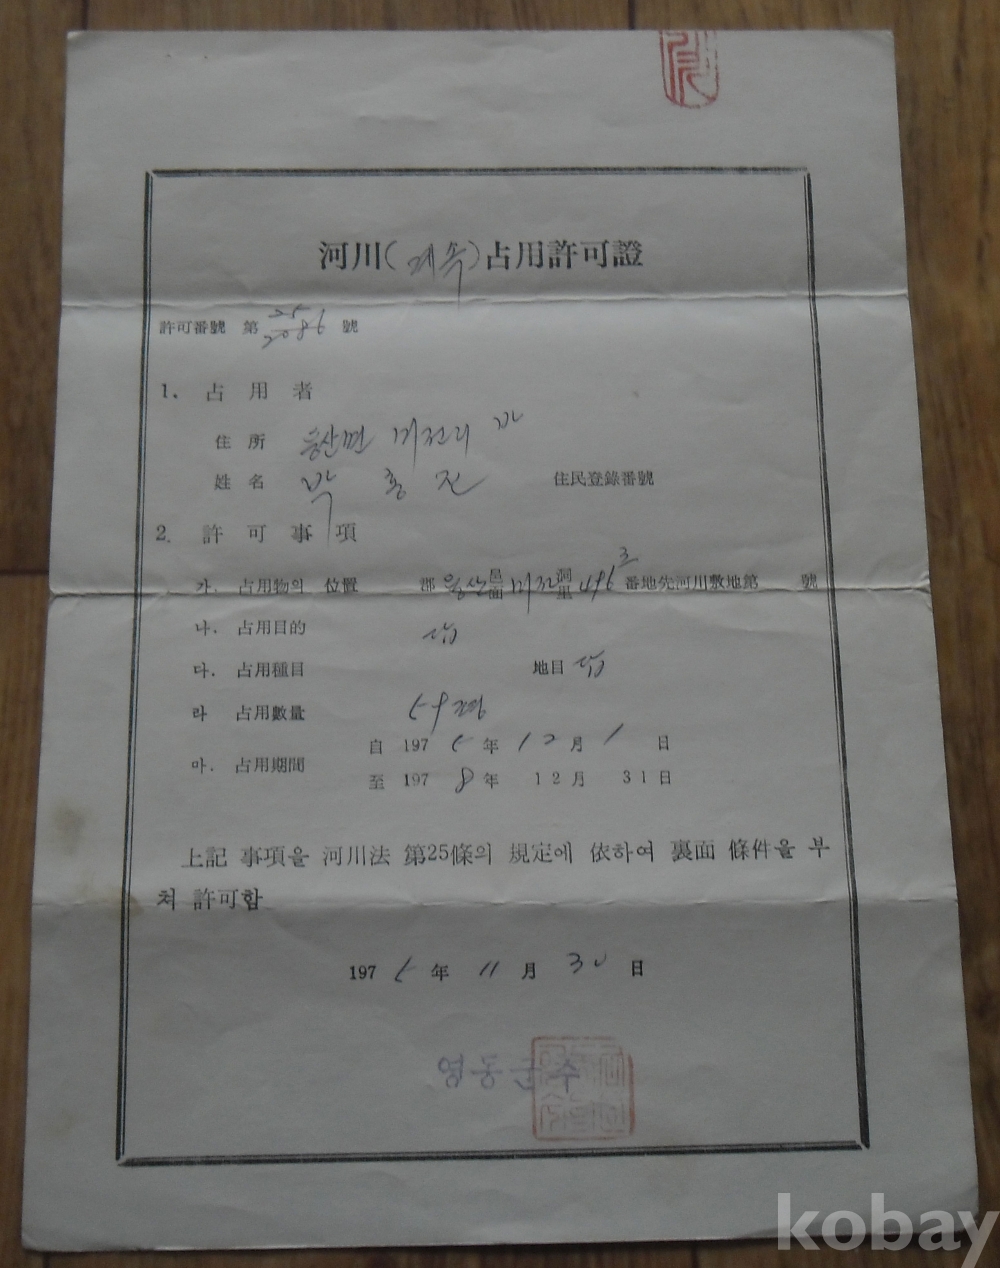 河川(계속)占用許可證
許可番號 第 25 號
2086
1. 占用者
住所 용산면 미전리
姓名 박홍진 住民登錄番號
2. 許可事項
가. 占用物의 位置 郡 용산 邑面 미전 洞里 496 3 番地先河川敷地第 號
나. 占用目的 답
다. 占用種目 地目 답
라 占用數量 54평
마. 占用期間 自 1975年 12月 1日
至 1978年 12月 31日
上記 事項을 河川法 第25條의 規定에 依하여 裏面 條件을 부
쳐 許可함
1975年 11月 30日
영동군수
kobay